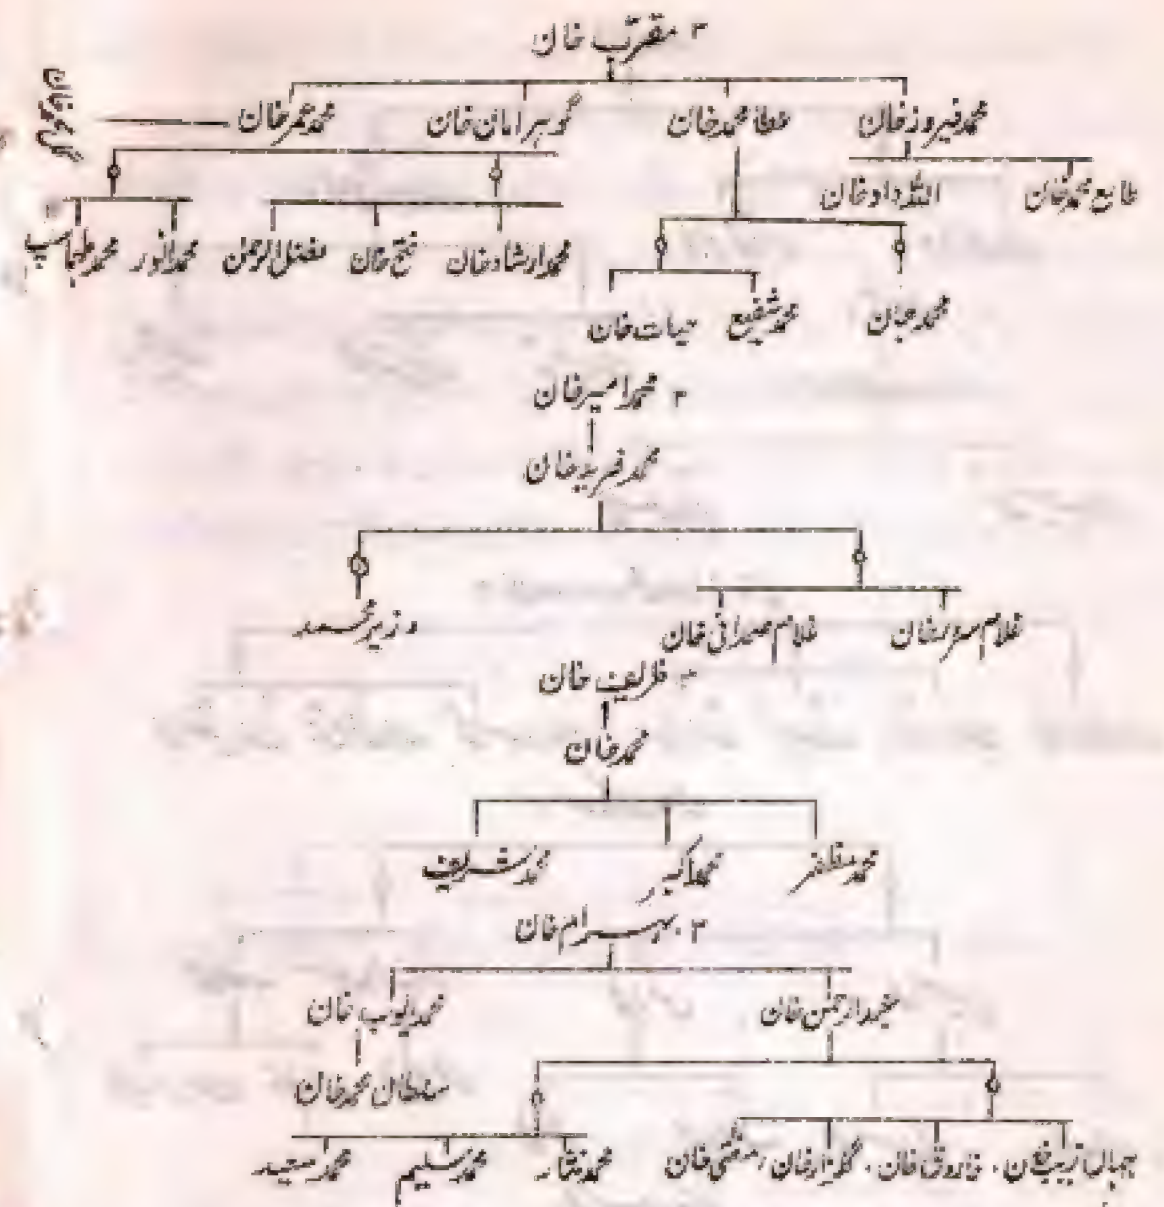 ۳ مقرب خان
محمد فیروز خان عطا محمد خان گوہر امان خان محمد عمر خان
طالع محمد خان اللہ داد خان
محمد ارشاد خان فتح خان فضل الرحمن محمد انور محمد طہماسپ
محمد جان محمد شفیع حیات خان
۳ محمد امیر خان
محمد فرید خان
غلام سرور خان غلام صمدانی خان وزیر محمد
ظریف خان
محمد خان
محمد مظفر محمد اکبر محمد شریف
۳ بہرام خان
عبدالرحمن خان محمد ایوب خان
سلطان محمد خان
جہاں زیب خان، فاروق خان، گلزار خان، مرتضی خان محمد نثار محمد سلیم محمد سعید